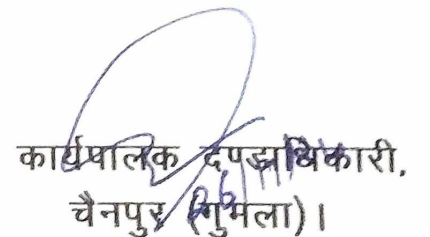 कार्यपालक दण्डाधिकारी,
चैनपुर (गुमला)।